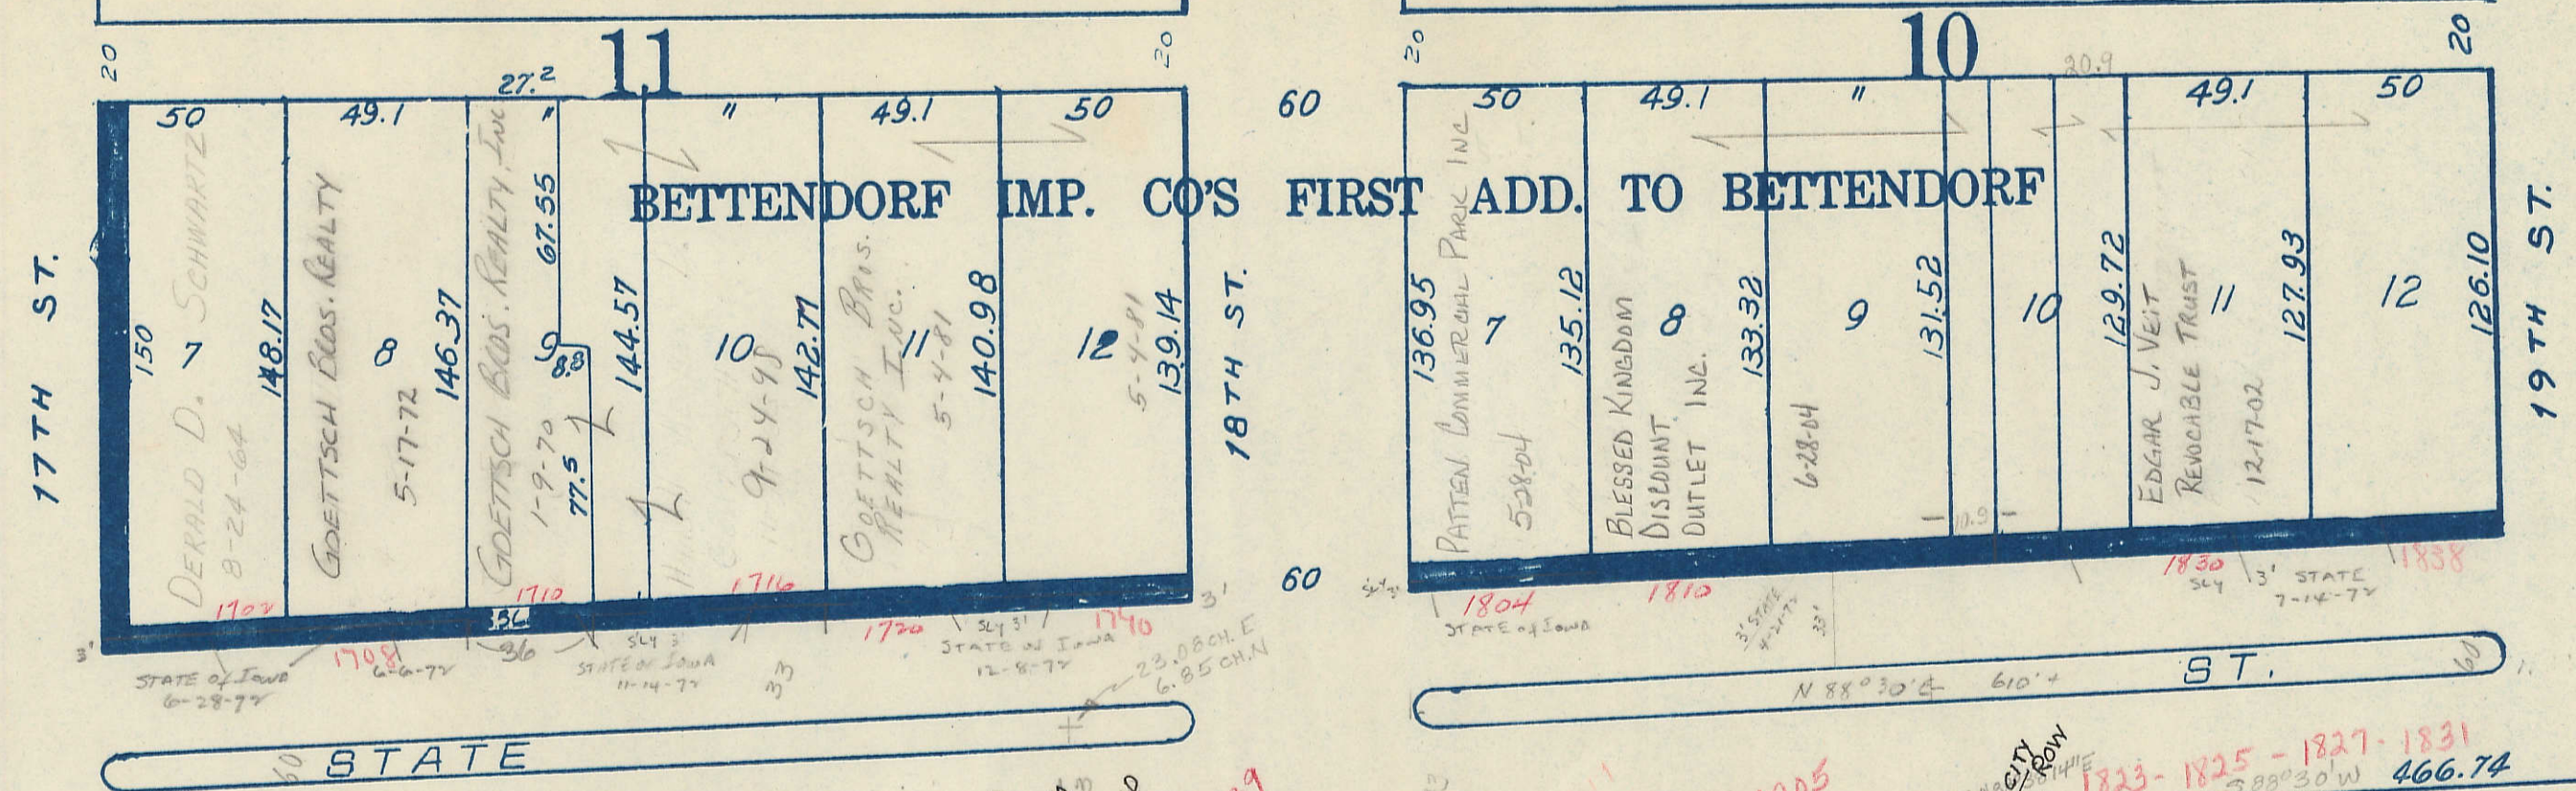 11
10
20
20
20
20
27.2
20.9
50
49.1
"
"
49.1
50
60
50
49.1
"
49.1
50
BETTENDORF IMP. CO'S FIRST ADD. TO BETTENDORF
17TH ST.
150
7
DERALD D. SCHWARTZ
8-24-64
148.17
GOETTSCH BROS. REALTY
8
5-17-72
146.37
GOETTSCH BROS. REALTY, INC
1-9-70
67.55
9
8.8
77.5
144.57
10
9-24-98
142.77
GOETTSCH BROS.
REALTY INC.
11
5-4-81
140.98
12
5-4-81
139.14
18TH ST.
136.95
PATTEN COMMERCIAL PARK INC
7
5-28-04
135.12
BLESSED KINGDOM
DISCOUNT
OUTLET INC.
8
133.32
9
6-28-04
131.52
10
129.72
EDGAR J. VEIT
REVOCABLE TRUST
11
12-17-02
127.93
12
126.10
19TH ST.
10.9
1702
1708
1710
36
1716
1720
1740
3'
60
1804
1810
1830
1838
3'
STATE OF IOWA
6-28-72
6-6-72
36
SLY 3'
STATE OF IOWA
11-14-72
33
SLY 3'
STATE OF IOWA
12-8-72
23.08 CH. E
6.85 CH. N
STATE OF IOWA
3' STATE
4-21-72
33'
SLY 3' STATE
7-14-72
60
STATE
N 88°30'E 610'+
ST.
60
CITY
ROW
1823- 1825 - 1827- 1831
S 88°30'W
466.74